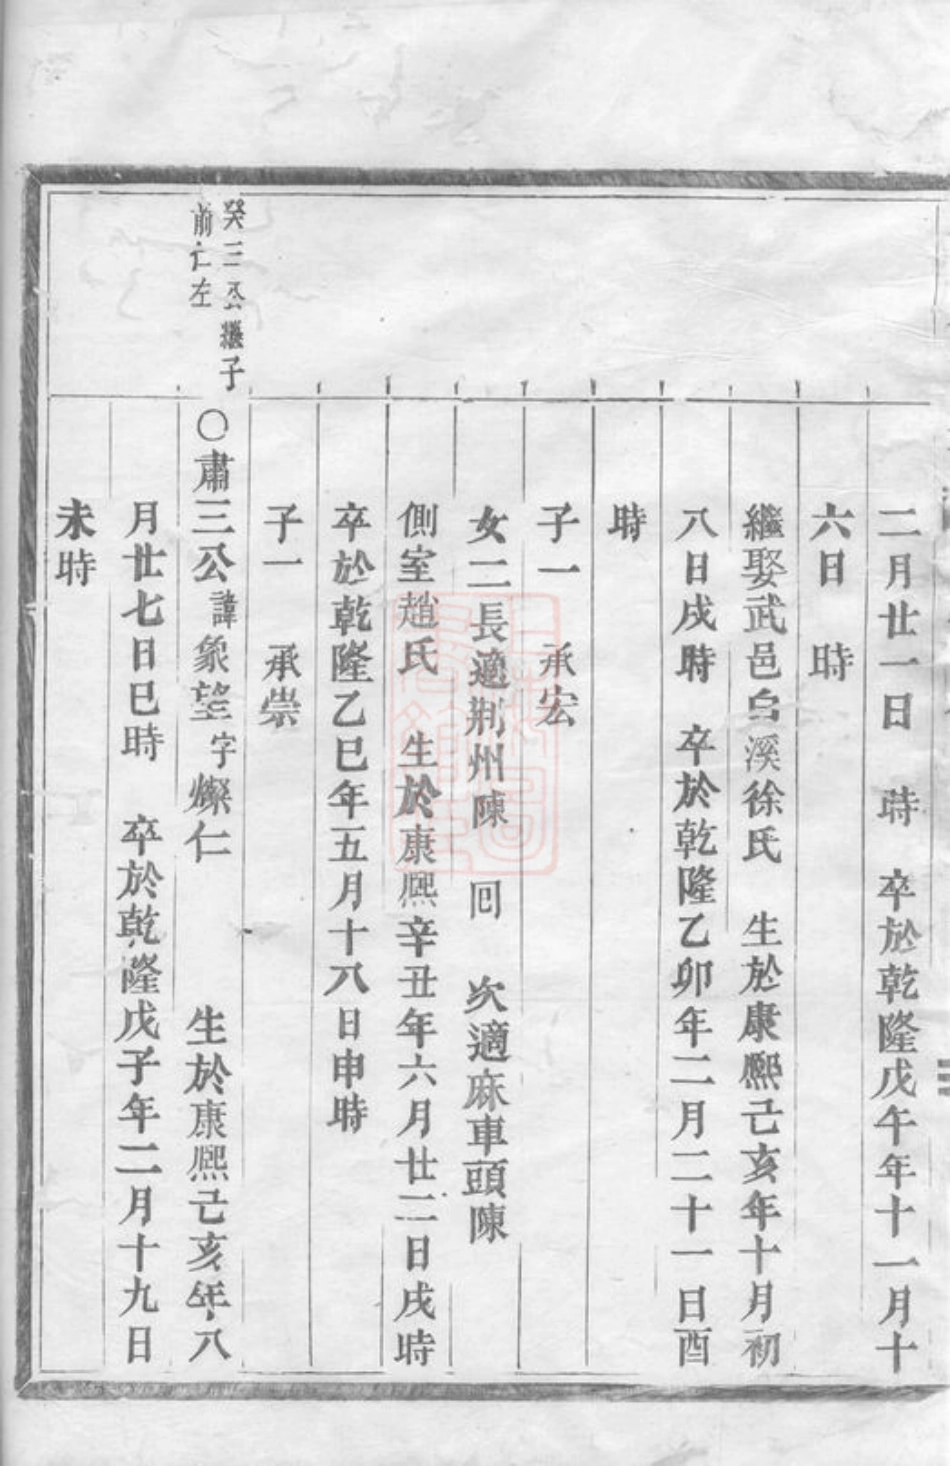 二月廿一日 時 卒於乾隆戊午年十一月十
六日 時
繼娶武邑白溪徐氏 生於康熙己亥年十月初
八日戌時 卒於乾隆乙卯年二月二十一日酉
時
子一 承宏
女二長適荆州陳 囘 次適麻車頭陳
側室趙氏 生於康熙辛丑年六月廿二日戌時
卒於乾隆乙巳年五月十八日申時
子一 承崇
癸三公繼子
前仁左
〇肅三公諱象望字燦仁 生於康熙己亥年八
月廿七日巳時 卒於乾隆戊子年二月十九日
未時